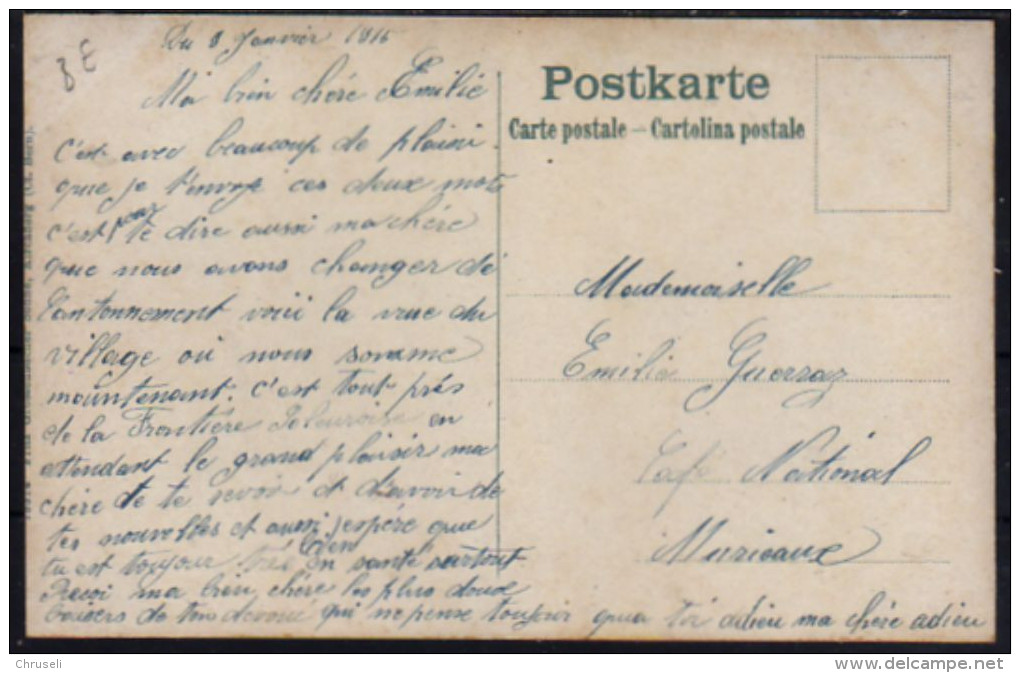 BE
Du 8 Janvier 1916
Ma bien chère Emilie
c'est avec beaucoup de plaisir
que je t'envoye ces deux mots
c'est pour te dire aussi ma chère
que nous avons changer de
Cantonnement voici la vue du
village où nous somme
maintenant. C'est tout près
de la Frontière en
attendant le grand plaisir ma
chère de te revoir et d'avoir de
tes nouvelles et aussi j'espère que
tu est toujour très bien en santé surtout
Reçoi ma bien chère les plus doux
baisers de ton dévoué qui ne pense toujour qua toi adieu ma chère adieu
Postkarte
Carte postale – Cartolina postale
Mademoiselle
Emilie Guerraz
Café National
Muriaux
Chruseli
www.delcampe.net